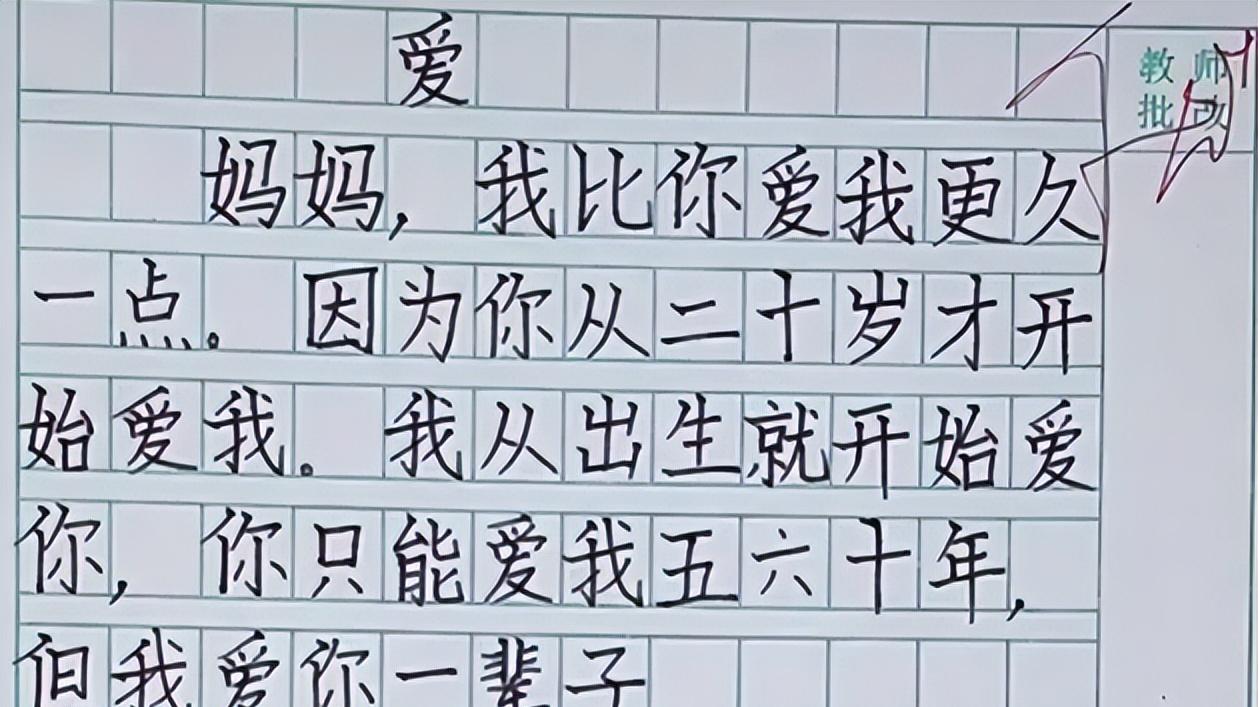 爱
妈妈，我比你爱我更久
一点。因为你从二十岁才开
始爱我。我从出生就开始爱
你，你只能爱我五六十年，
但我爱你一辈子
教师
批改